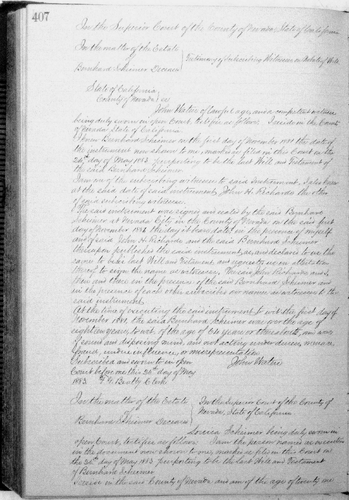 407
In the Superior Court of the County of Nevada, State of California
In the matter of the Estate
of
Testimony of Subscribing Witness on Probate of Will
Bernhard Schimer Deceased
State of California
County of Nevada } ss
John being duly sworn in open Court, testifies as follows. I reside in the County
of Nevada State of California
I knew Bernhard Schimer on the first day of November 1881 the date of
the instrument now shown to me, filed in this Court on the
24th day of May 1883, purporting to be the last Will and Testament of
the said Bernhard Schimer
I am one of the subscribing witnesses to said instrument, I also knew
at the said date of said instrument, John H. Richards the other
of said subscribing witnesses.
The said instrument was signed and sealed by the said Bernhard
Schimer at Nevada City, in the County of Nevada on the said first
day of November 1881, the day it bears date, in the presence of myself
and of said John H. Richards, and the said Bernhard Schimer
thereupon published the said instrument as, and declared to us the
same to be his last Will and Testament, and requested us in attestation
thereof to sign the same as witnesses. The said John Richards and I
then and there in the presence of the said Bernhard Schimer and
in the presence of each other subscribed our names as witnesses to the
said instrument.
At the time of executing the said instrument to wit the first day of
November 1881 the said Bernhard Schimer was over the age of
eighteen years to wit of the age of 64 years or thereabouts, and was
of sound and disposing mind, and not acting under duress, menace,
fraud, undue influence, or misrepresentation
Subscribed and sworn to in open
John
Court before me this day of May
1883 Clerk
In the matter of the Estate
of
In the Superior Court of the County of
Nevada, State of California
Bernhard Schimer Deceased
Schimer being duly sworn in
open Court, testifies as follows. I am the person named as executrix
in the instrument now shown to me, marked as filed in this Court on
the 24th day of May 1883, purporting to be the last Will and Testament
of Bernhard Schimer
I reside in the said County of Nevada and am of the age of twenty one